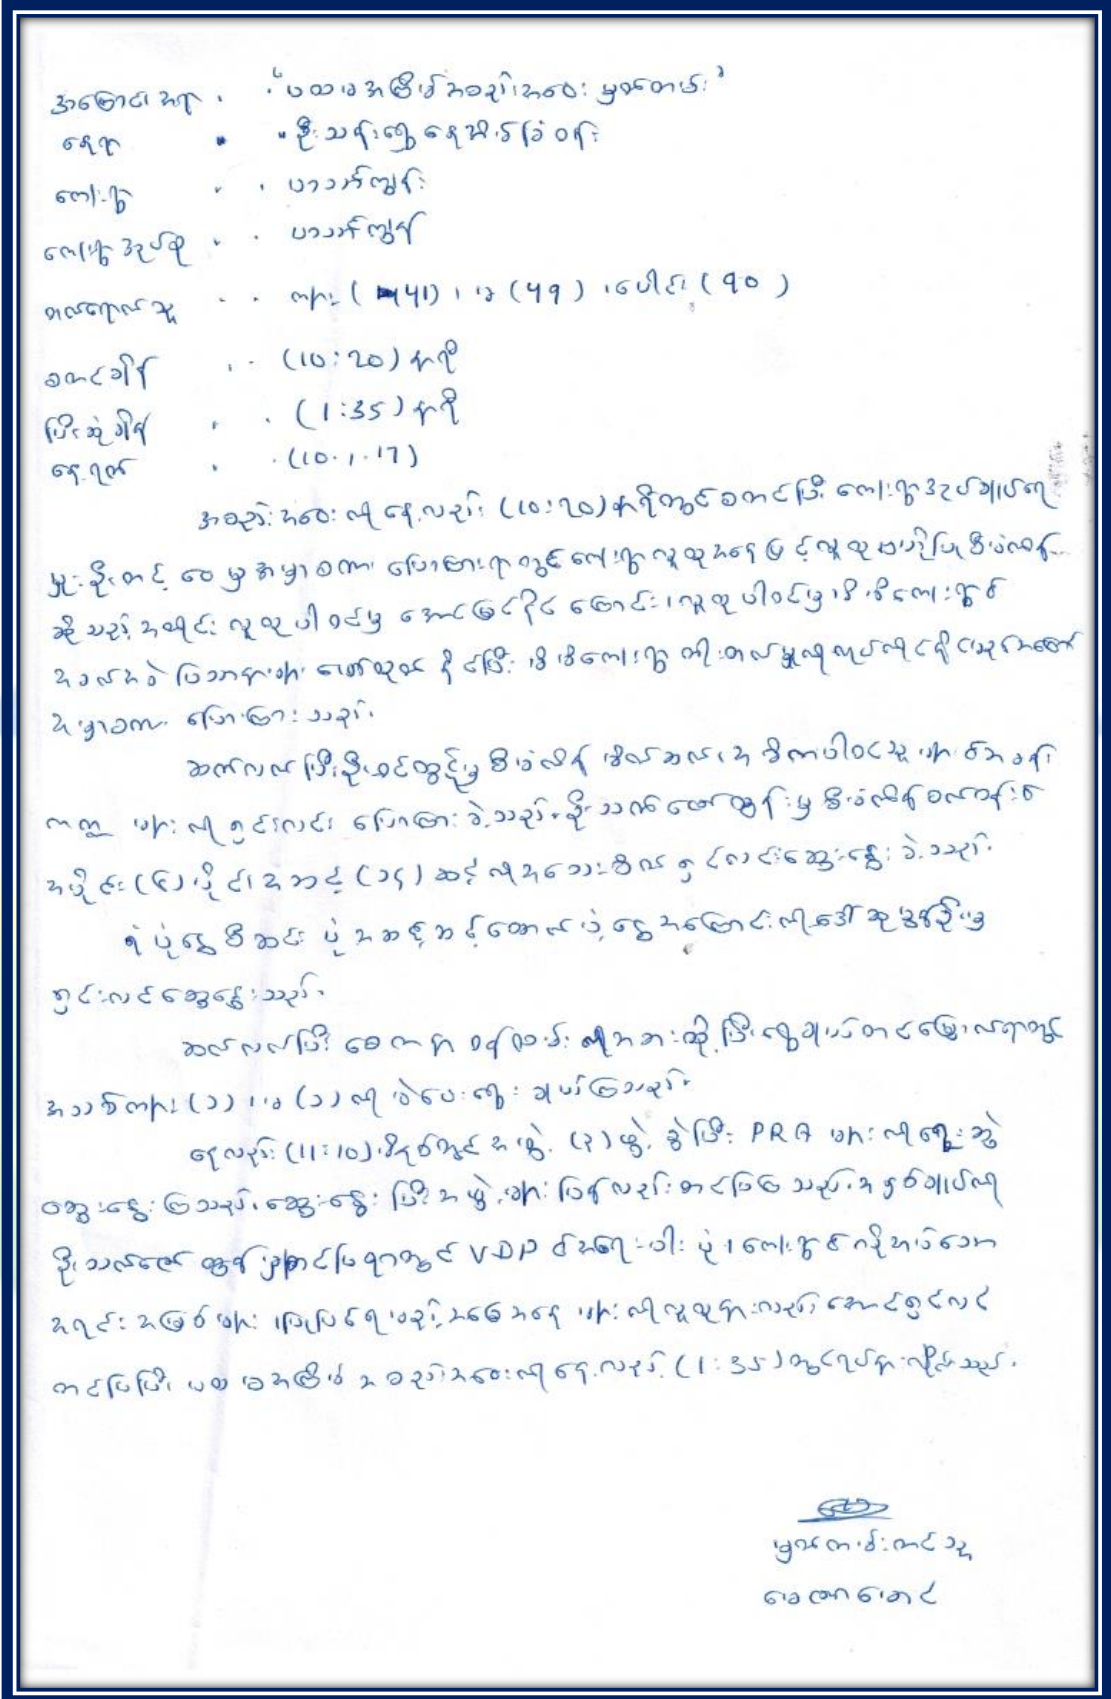 အကြောင်းအရာ - "ပထမအကြိမ်အစည်းအဝေးမှတ်တမ်း"
နေရာ - ဦးသန်းရွှေနေအိမ်ခြံဝန်း
ကျေးရွာ - ပာသတ်ကျွန်း
ကျေးရွာအုပ်စု - ပာသတ်ကျွန်း
တက်ရောက်သူ - ကျား (41) ၊ မ (49) ၊ ပေါင်း (90)
စတင်ချိန် - (10:20) နာရီ
ပြီးဆုံးချိန် - (1:35) နာရီ
နေ့ရက် - (10.1.17)
အစည်းအဝေးကို နေ့လည် (10:20) နာရီတွင်စတင်ပြီး ကျေးရွာအုပ်ချုပ်ရေး
မှူးဦးတင့်ဝေမှ အမှာစကားပြောကြားရာတွင် ကျေးရွာလူထုအနေဖြင့် လူထုဗဟိုပြုစီမံကိန်း
ဆိုသည့်အတိုင်း လူထုပါဝင်မှ အောင်မြင်နိုင်ကြောင်း၊ လူထုပါဝင်မှ မိမိကျေးရွာ၏
အခက်အခဲပြဿနာများ ဖော်ထုတ်နိုင်ပြီး မိမိကျေးရွာတိုးတက်မှုကိုလုပ်ကိုင်နိုင်သည့်အကြောင်
အမှာစကား ပြောကြားသည်။
ဆက်လက်ပြီး ဦးမင်းထွဋ်မှ စီမံကိန်း မိတ်ဆက်၊ အဓိကပါဝင်သူများ၏အခန်း
ကဏ္ဍများကို ရှင်းလင်းပြောကြားခဲ့သည်။ ဦးသက်ဇော်ထွန်းမှ စီမံကိန်စက်ဝန်း၏
အပိုင်း (၆) ပိုင်း၊ အဆင့် (၁၄) ဆင့်ကိုအသေးစိတ်ရှင်းလင်းဆွေးနွေးခဲ့သည်။
ရံပုံငွေစီးဆင်းပုံအဆင့်ဆင့်ထောက်ပံ့ငွေအကြောင်းကို ဒေါ်
ရှင်းလင်းဆွေးနွေးသည်။
ဆက်လက်ပြီး စေတနာ့ဝန်ထမ်း
အသက်ကျား (၁) ၊ မ (၁) ကို မဲပေးရွေးချယ်ကြသည်။
နေ့လည် (11:10) မိနစ်တွင်အဖွဲ့ (၃) ဖွဲ့ ခွဲပြီး PRA များကိုရေးဆွဲ
ဆွေးနွေးကြသည်။ ဆွေးနွေးပြီး အဖွဲ့များပြန်လည်တင်ပြကြသည်။ အနှစ်ချုပ်ကို
ဦးသက်ဇော်ထွန်းမှတင်ပြရာတွင် VDP ၏အရေးပါပုံ၊ ကျေးရွာ၏လိုအပ်သော
အရင်းအမြစ်များ၊ ပြုပြင်ရမည့်အခြေအနေများကို လူထုနားလည်အောင်ရှင်းလင်
တင်ပြပြီး ပထမအကြိမ်အစည်းအဝေးကို နေ့လည် (1:35) တွင်ရပ်နားလိုက်သည်။
မှတ်တမ်းတင်သူ